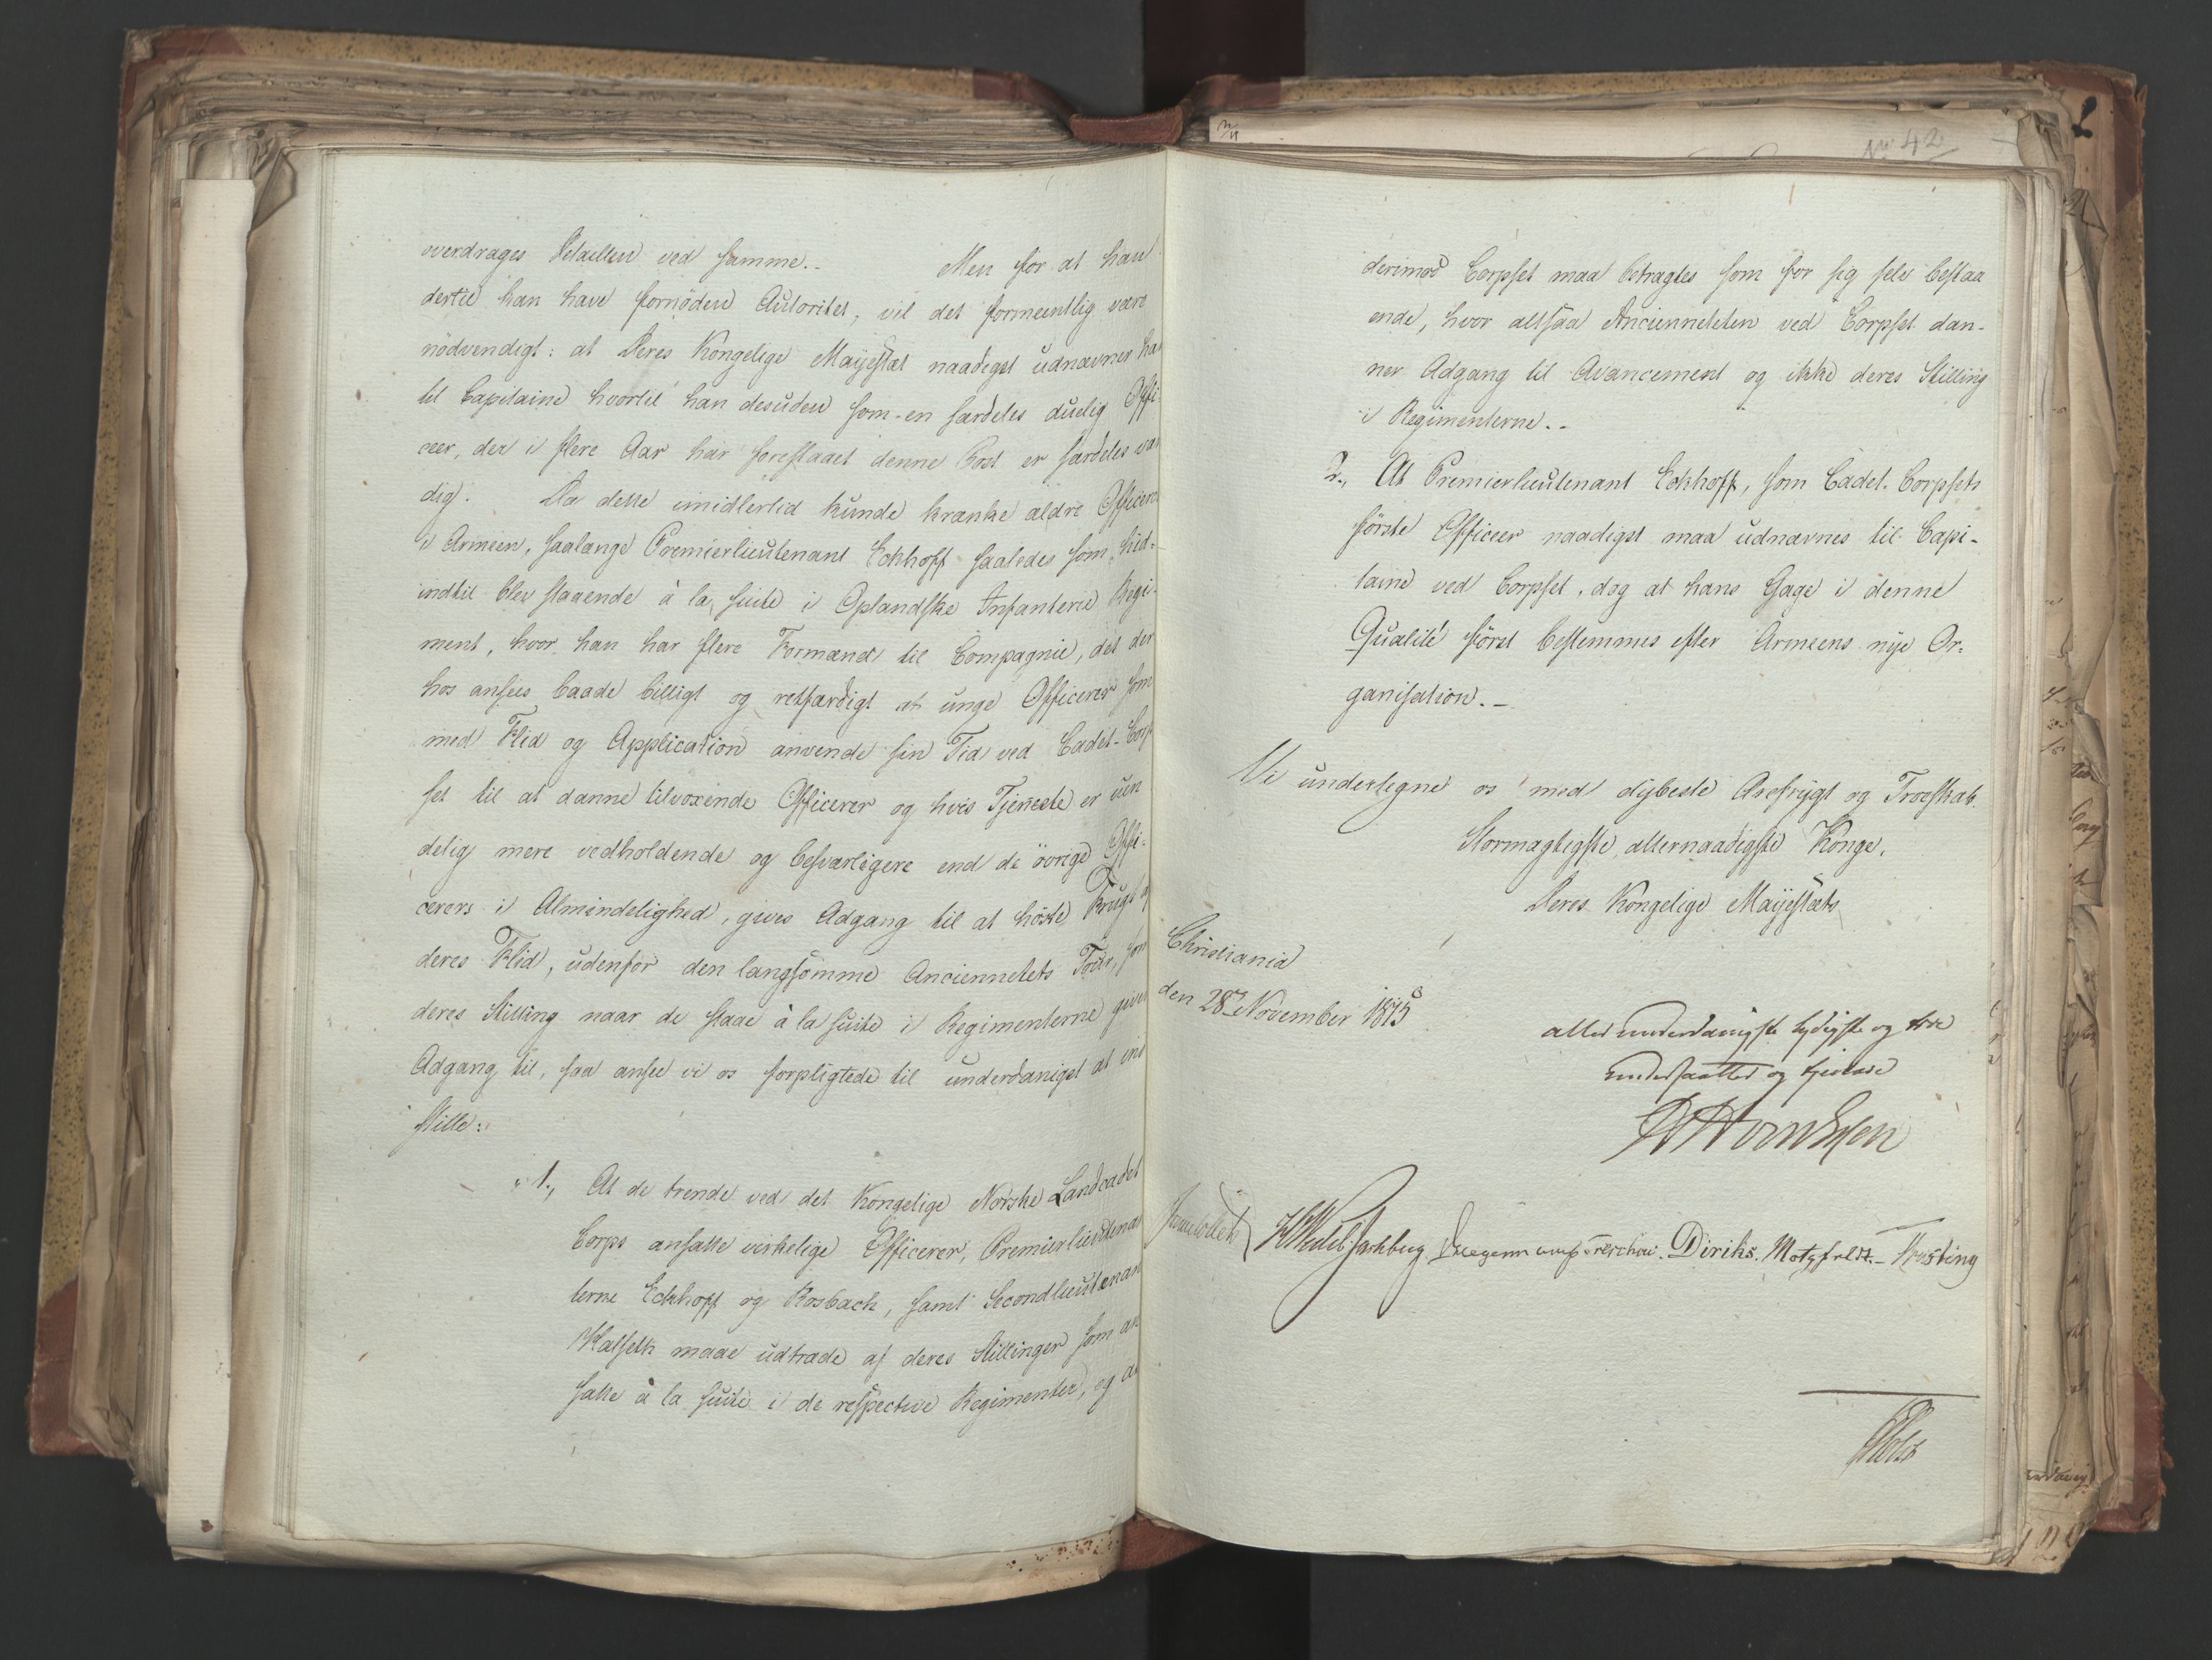 overdrages Detaillen ved samme. - Men for at han
dertil kan have fornöden Autoritet, vil det formeentlig være
nödvendigt: at Deres Kongelige Mayestæt naadigst udnævner ha
til Capitaine hvortil han desuden som en særdeles duelig Offi-
ceer, der i flere Aar har forestaaet denne Post er særdeles vær
dig. Da dette imidlertid kunde krænke ældre Officerer
i Armeen, saalænge Premierlieutenant Eckhoff saaledes som hid-
indtil blev staaende à la suite i Oplandske Infanterie Regi-
ment, hvor han har flere Formænd til Compagnie, det der
hos ansees baade billigt og retfærdigt at unge Officerer som
med Flid og Application anvende sin Tid ved Cadet-Corp
set til at danne tilvoxende Officerer og hvis Tjeneste er uen
delig mere vedholdende og besværligere end de övrige Offi-
cerers i Almindelighed, gives Adgang til at höste Frugt af
deres Flid, udenfor den langsomme Anciennetets Tour, som
deres Stilling naar de staae à la suite i Regimenterne giver
Adgang til, saa ansee vi os forpligtede til underdanigst at ind
stille:
1., At de trende ved det Kongelige Norske Landcadet
Corps ansatte virkelige Officerer, Premierlieutenan
terne Eckhoff og Rosbach, samt Secondlieutenan
maae udtræde af deres Stillinger som an
satte à la suite i de respective Regimenter, og
No 42
derimod Corpset maa betragtes som for sig selv bestaa
ende, hvor altsaa Ancienneteten ved Corpset dan-
ner Adgang til Avancement og ikke deres Stilling
i Regimenterne. -
2., At Premierlieutenant Eckhoff, som Cadet-Corpsets
förste Officeer naadigst maa udnævnes til Capi-
taine ved Corpset, dog at hans Gage i denne
Qualité först bestemmes efter Armeens nye Or-
ganisation. -
Vi undertegne os med dybeste Ærefrygt og Troeskab.
Stormægtigste, allernaadigste Konge,
Deres Kongelige Mayestæts
Christiania
den 28de November 1815
allerunderdanigste lydigste og troe
undersaatter og tjenere
Sommerhielm HWedel-Jarlsberg Treschow. Diriks. Motzfeldt. - Fasting
Holst